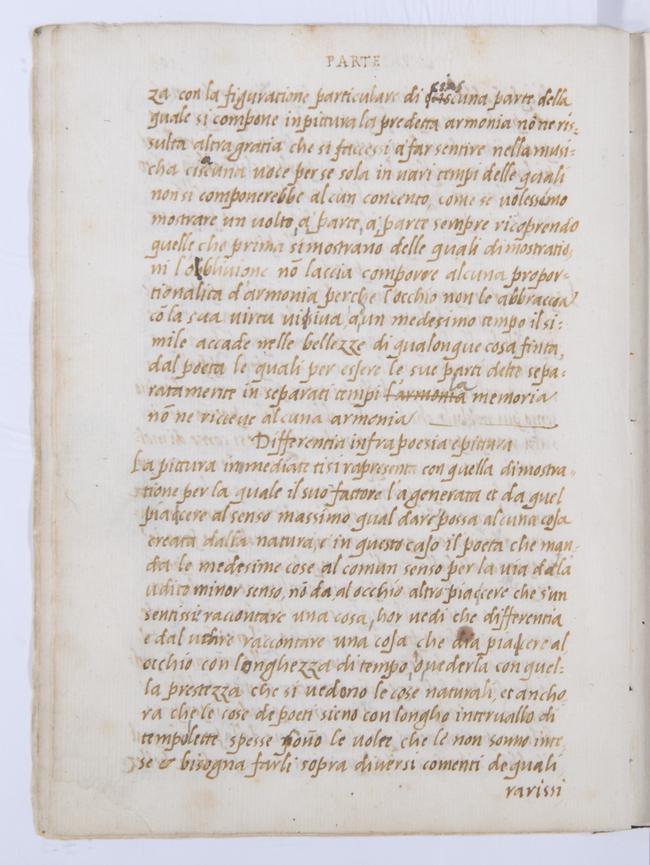 PARTE
za con la figuratione particulare di ciascuna parte della
quale si compone in pittura la predetta armonia nō ne ris:
sulta altra gratia che si facessi a far sentire nella musi:
cha ciascuna voce per se sola in vari tempi delle quali
non si componerebbe alcun concento, come se volessimo
mostrare un volto, a parte, a parte sempre ricoprendo
quelle che prima si mostrano delle quali dimostratio
ni l'oblivione nō laccia comporre alcuna propor-
tionalita d'armonia perche l'occhio non le abbraccia
cō la sua virtu visiva, a un medesimo tempo il si:
mile accade nelle bellezze di qualonque cosa finta,
dal poeta le quali per essere le sue parti dette sepa:
ratamente in separati tempi l'armonia la memoria
nō ne riceve alcuna armonia
Differentia infra poesia e pittura
La pittura immediate ti si rapresenta con quella dimostra-
tione per la quale il suo fattore l'a generata et da quel
piaccere al senso massimo qual dare possa alcuna cosa
creata dalla natura, e in questo caso il poeta che man-
da le medesime cose al comun senso per la via dala
udito minor senso, nō da, al occhio altro piaccere che s'un
sentissi raccontare una cosa, hor vedi che differentia
e dal udire raccontare una cosa che dia piacere al
occhio con longhezza di tempo, o vederla con quel:
la prestezza che si vedono le cose naturali, et ancho
ra che le cose de poeti sieno con longho intervallo di
tempo lette spesse sono le volte che le non sonno inte
se & bisogna farli sopra diversi comenti de quali
rarissi